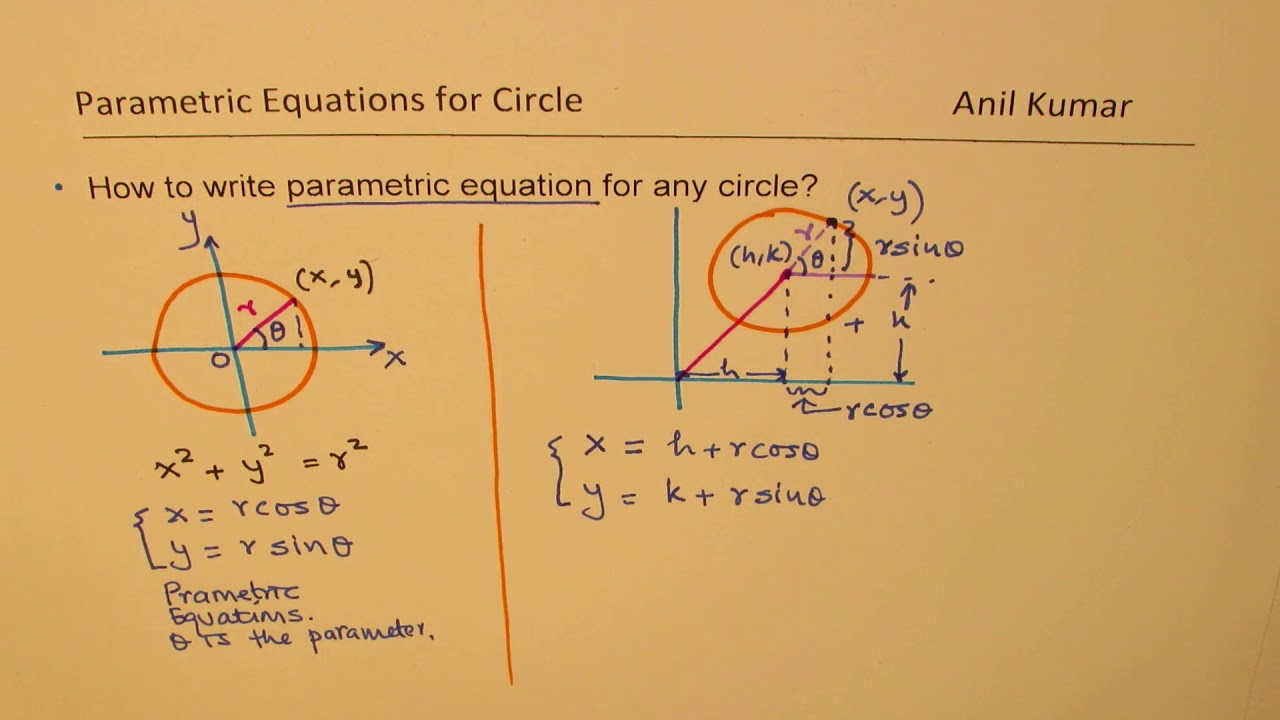 Parametric Equations for Circle Anil Kumar
• How to write parametric equation for any circle?
y
(x, y)
r
θ
O
x
x² + y² = r²
x = r cos θ
y = r sin θ
Prametric
Equations.
θ is the parameter.
(x, y)
r
(h, k)
θ
r sin θ
+
k
h
r cos θ
x = h + r cos θ
y = k + r sin θ